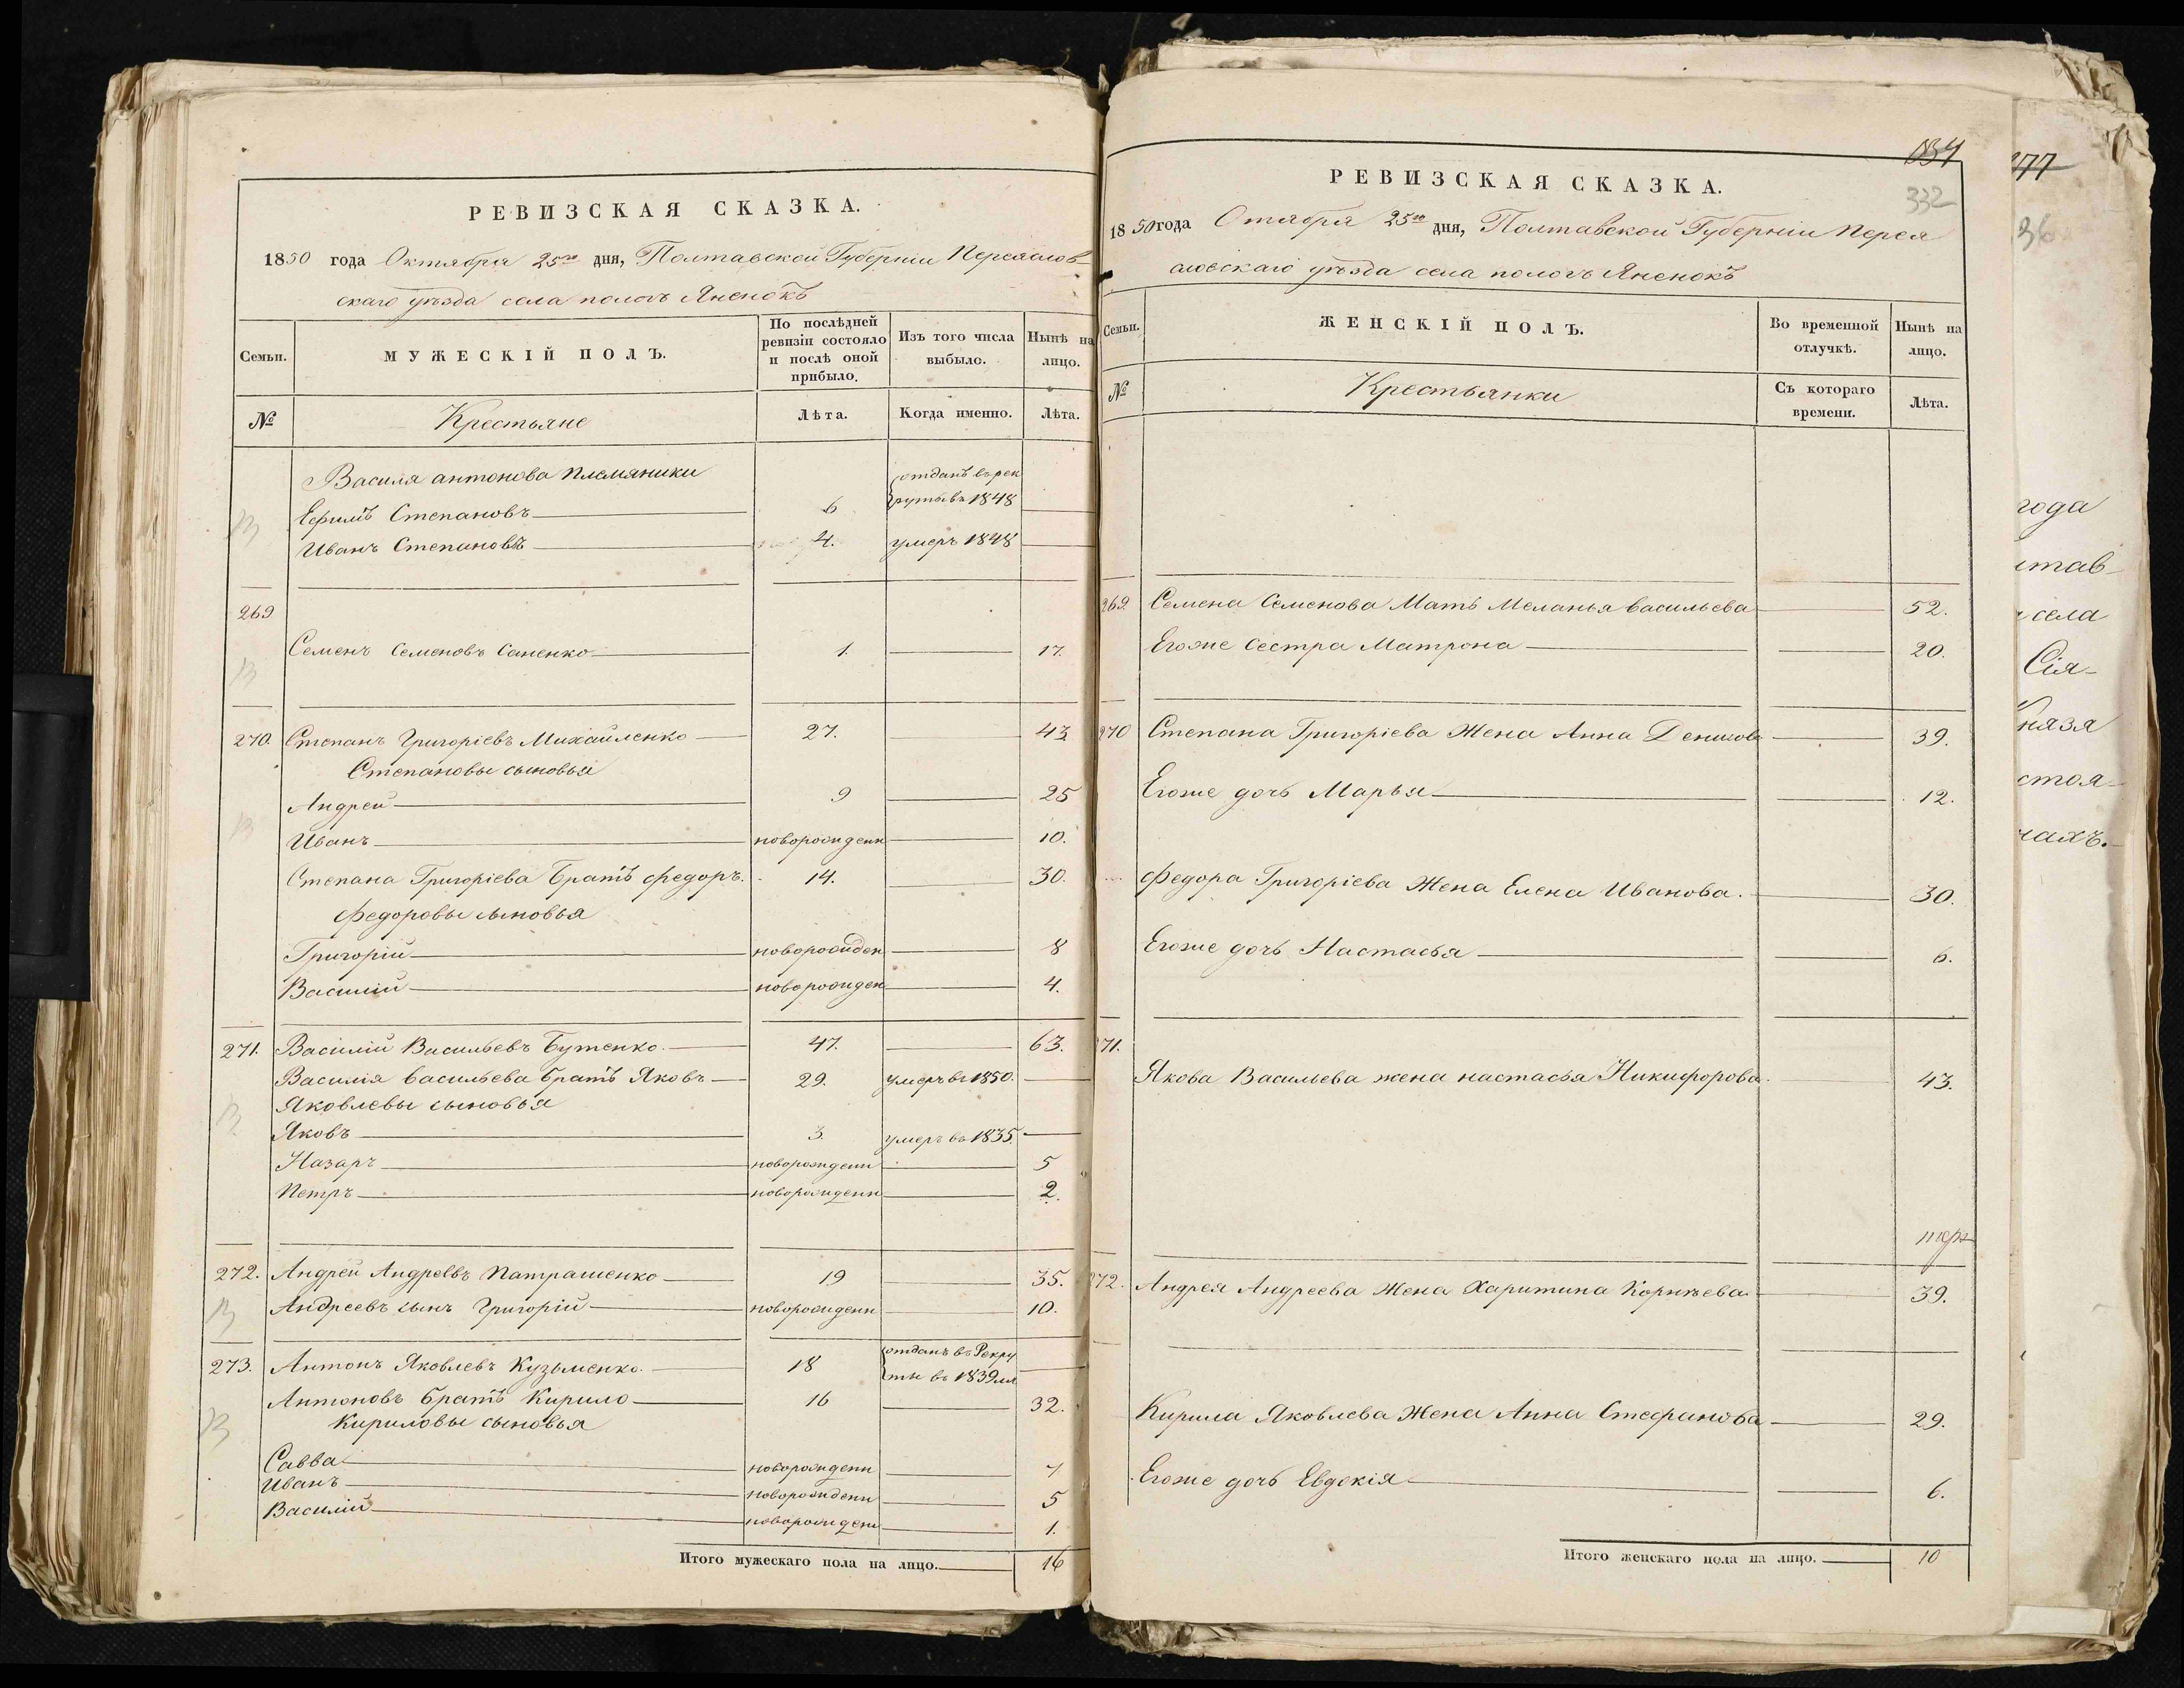 РЕВИЗСКАЯ СКАЗКА.
1850 года Октября 25го дня, Полтавской Губерніи Переяслов-
скаго уѣзда села пологъ Яненокъ
Семьи.
МУЖЕСКІЙ ПОЛЪ.
По послѣдней ревизіи состояло и послѣ оной прибыло.
Изъ того числа выбыло.
Нынѣ на лицо.
№
Крестьяне
Лѣта.
Когда именно.
Лѣта.
Василя антонова племяники
Ефимъ Степановъ 6 отданъ въ рекруты въ 1848
Иванъ Степановъ 4. умеръ 1848
269
Семенъ Семеновъ Саненко 1. 17.
270. Степанъ Григоріевъ Михайленко 27. 43
Степановы сыновья
Андрей 9 25
Иванъ новорожденн 10.
Степана Григоріева Братъ Федоръ. 14. 30.
Федоровы сыновья
Григорій новорожден 8
Василій новорожден 4.
271. Василій Васильевъ Бутенко. 47. 63.
Василія васильева братъ Яковъ 29. умеръ въ 1850.
Яковлевы сыновья
Яковъ 3. умеръ въ 1835.
Назаръ новорожденн 5
Петръ новорожденн 2.
272. Андрей Андреевъ Патрашенко 19 35.
Андреевъ сынъ Григорій новорожденн 10.
273. Антонъ Яковлевъ Кузьменко. 18 отданъ въ Рекруты въ 1839мъ
Антоновъ братъ Кирило 16 32.
Кириловы сыновья
Савва новорожденн 7
Иванъ новорожденн 5
Василій новорожден 1.
Итого мужескаго пола на лицо. 16
184
332
РЕВИЗСКАЯ СКАЗКА.
1850 года Октября 25го дня, Полтавской Губерніи Перея
словскаго уѣзда села пологъ Яненокъ
Семьи.
ЖЕНСКІЙ ПОЛЪ.
Во временной отлучкѣ.
Нынѣ на лицо.
№
Крестьянки
Съ котораго времени.
Лѣта.
269. Семена Семенова Мать Меланья васильева 52.
Егоже Сестра Матрона 20.
270 Степана Григоріева Жена Анна Денисова 39.
Егоже дочь Марья 12.
Федора Григоріева Жена Елена Иванова. 30.
Егоже дочь Настасья 6.
271.
Якова Васильева жена настасья Никифорова. 43.
272. Андрея Андреева Жена Харитина Корнѣева 39.
Кирила Яковлева Жена Анна Стефанова 29.
Егоже дочь Евдокія 6.
Итого женскаго пола на лицо. 10
177
36
года
тав-
села
Сія-
нязя
стоя-
чахъ.